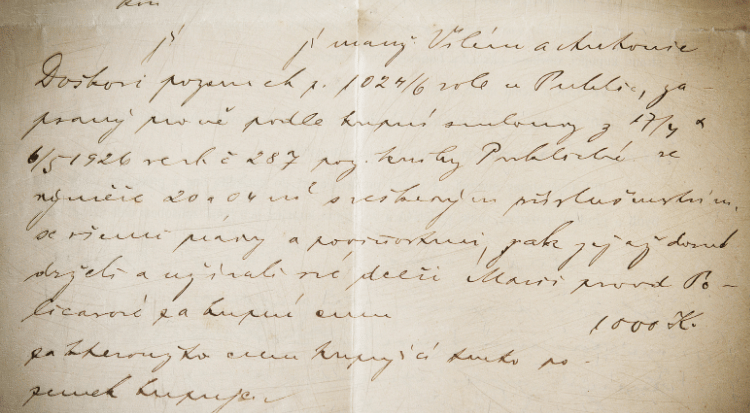 jí manž. Vilém a Antonie
Doškovi pozemek p. 1024/6 role u Public, za-
psaný prvně podle kupní smlouvy z 17/4 a
6/5 1926 ve vl. č 287 poz. knihy Publické se
výměře 20 a 04 m² s veškerým příslušenstvím,
se všemi právy a povinnostmi, jak jej až dosud
drželi a užívali své dceři Marii provd. Po-
licarové za kupní cenu
1000 K.
za kterou cenu kupující tento po-
zemek kupuje.